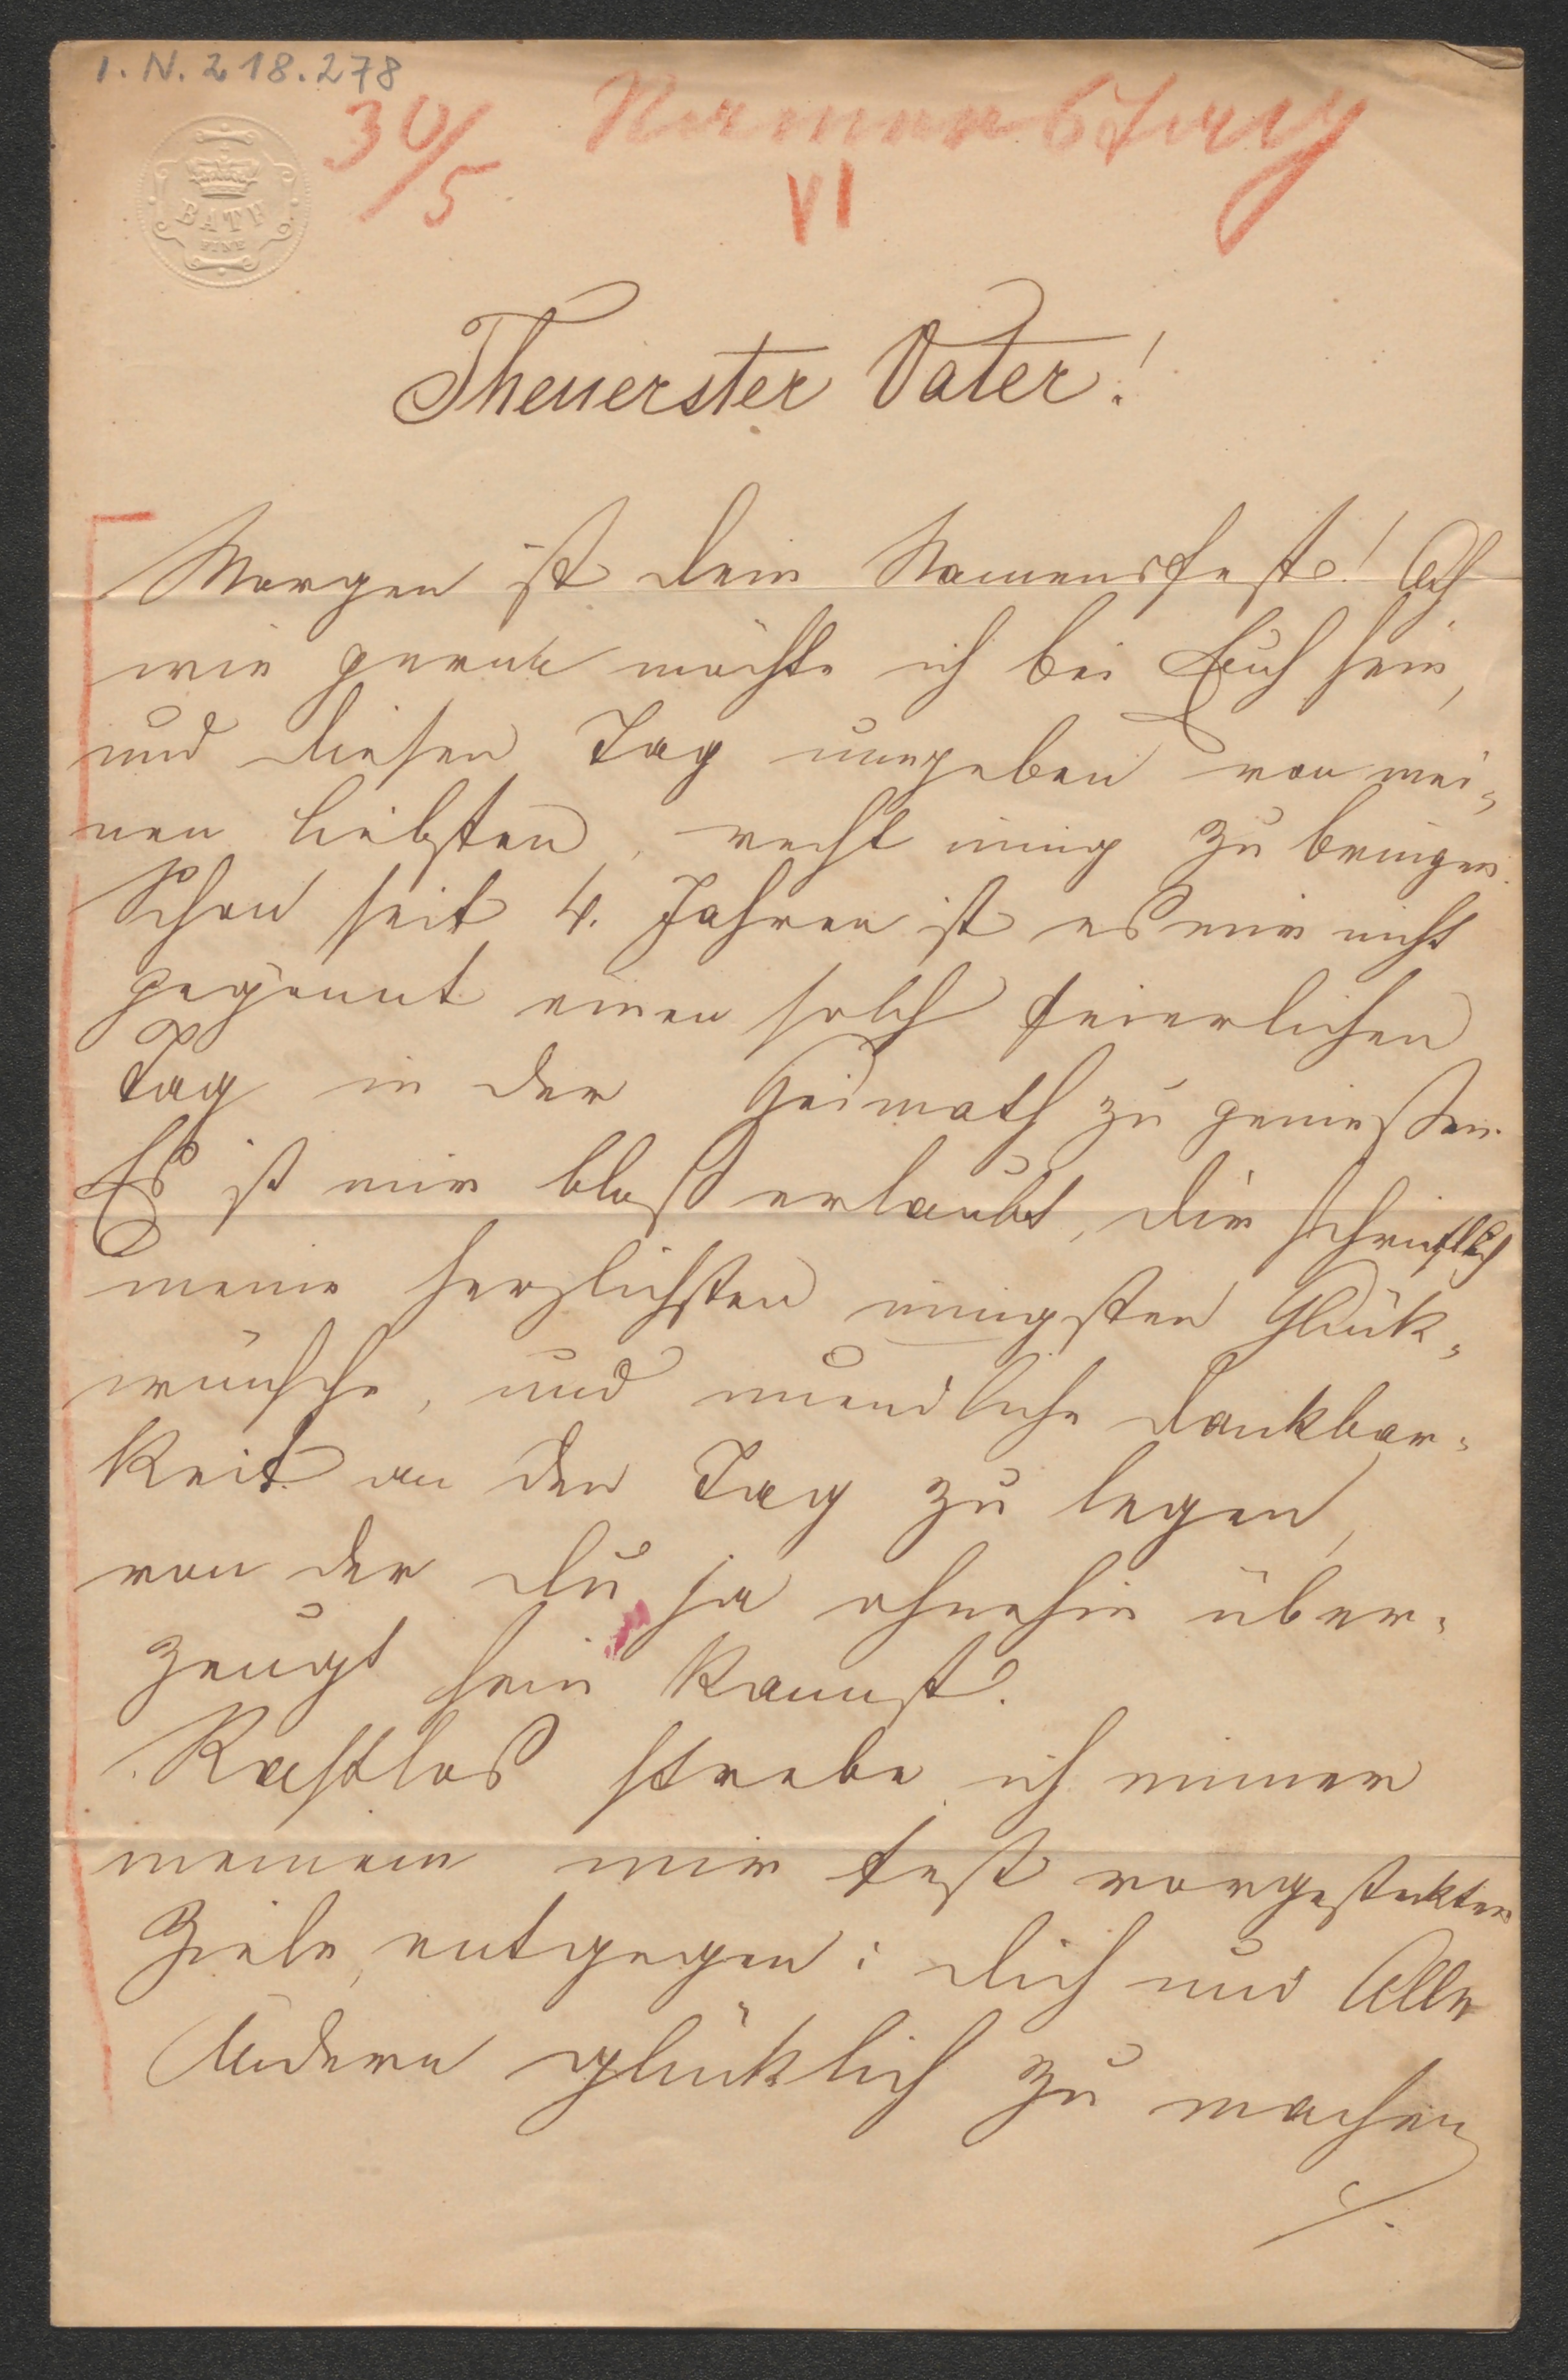 I. N. 218.278
30/5
VI
BATH
FINE
Theuerster Vater!
Morgen ist dein Namensfest! Ach
wie gerne möchte ich bei Euch sein,
und diesen Tag umgeben von mei=
nen Liebsten, recht innig zu bringen.
Schon seit 4. Jahren ist es mir nicht
gegönnt einen solch feierlichen
Tag in der Heimath zu genießen.
Es ist mir bloß erlaubt, dir schriftlich
meine herzlichsten innigsten Glück=
wünsche, und unendliche Dankbar=
keit an den Tag zu legen,
von der du ja ohnehin über=
zeugt sein kannst.
Rastlos strebe ich immer
meinem mir fest vorgesteckten
Ziele, entgegen: dich und Alle
Andern glücklich zu machen
./.